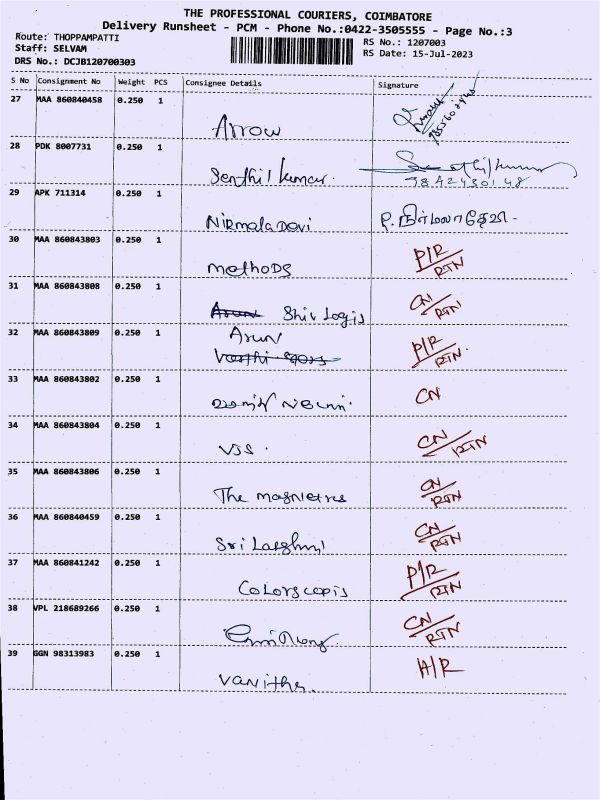 THE PROFESSIONAL COURIERS, COIMBATORE
Delivery Runsheet - PCM - Phone No.:0422-3505555 - Page No.:3
Route: THOPPAMPATTI
RS No.: 1207003
Staff: SELVAM
RS Date: 15-Jul-2023
DRS No.: DCJB120700303
S No Consignment No Weight PCS Consignee Details Signature
27 MAA 860840458 0.250 1
Arrow
28 PDK 8007731 0.250 1
Senthil kumar. Senthilkumar
9842430148
29 APK 711314 0.250 1
Nirmala Devi ர.நிர்மலாதேவி.
30 MAA 860843803 0.250 1
methods P/R
RTN
31 MAA 860843808 0.250 1
Arun Shiv Logis CN/
RTN
32 MAA 860843809 0.250 1
Arun P/R
RTN.
33 MAA 860843802 0.250 1
CN
34 MAA 860843804 0.250 1
VJS. CN/
RTN
35 MAA 860843806 0.250 1
The magnietres CN/
RTN
36 MAA 860840459 0.250 1
Sri Lakshmi CN/
RTN
37 MAA 860841242 0.250 1
Colorscopis P/R
RTN
38 VPL 218689266 0.250 1
CN/
RTN
39 GGN 98313983 0.250 1
Vanitha. A/R